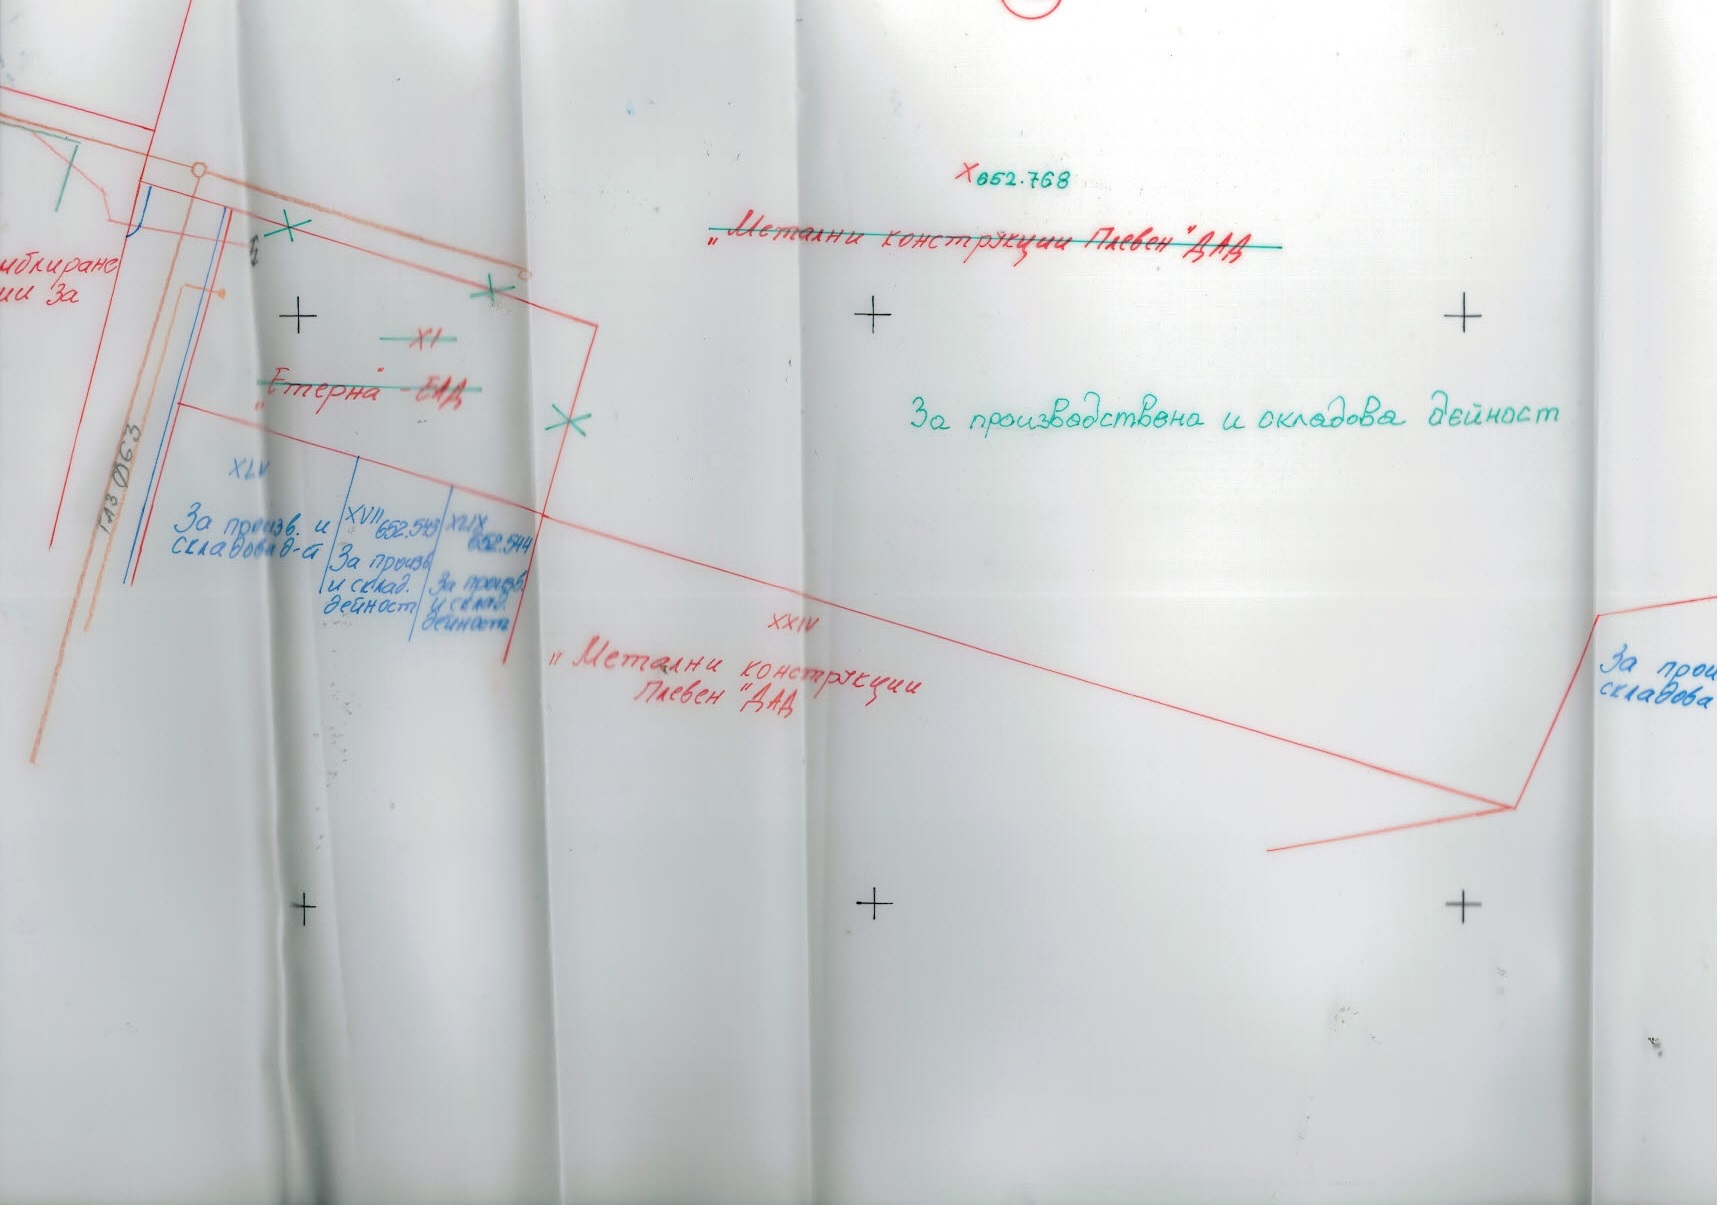 X652.768
„Метални конструкции Плевен" ДАД
иблиране
ии За
XI
„Етерна" - ЕАД
За производствена и складова дейност
XLV
За произв. и
складова д-а
XVII 652.543
За произв
и склад.
дейност
XLIX
652.544
За произв.
и склад.
дейност
XXIV
„Метални конструкции
Плевен" ДАД
За прои
складова